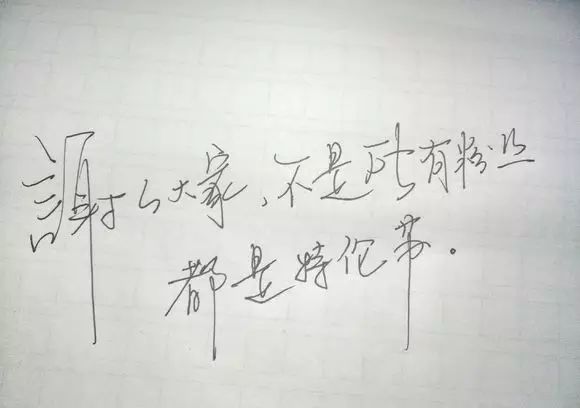 謝々大家,不是所有粉丝
都是特伦苏。